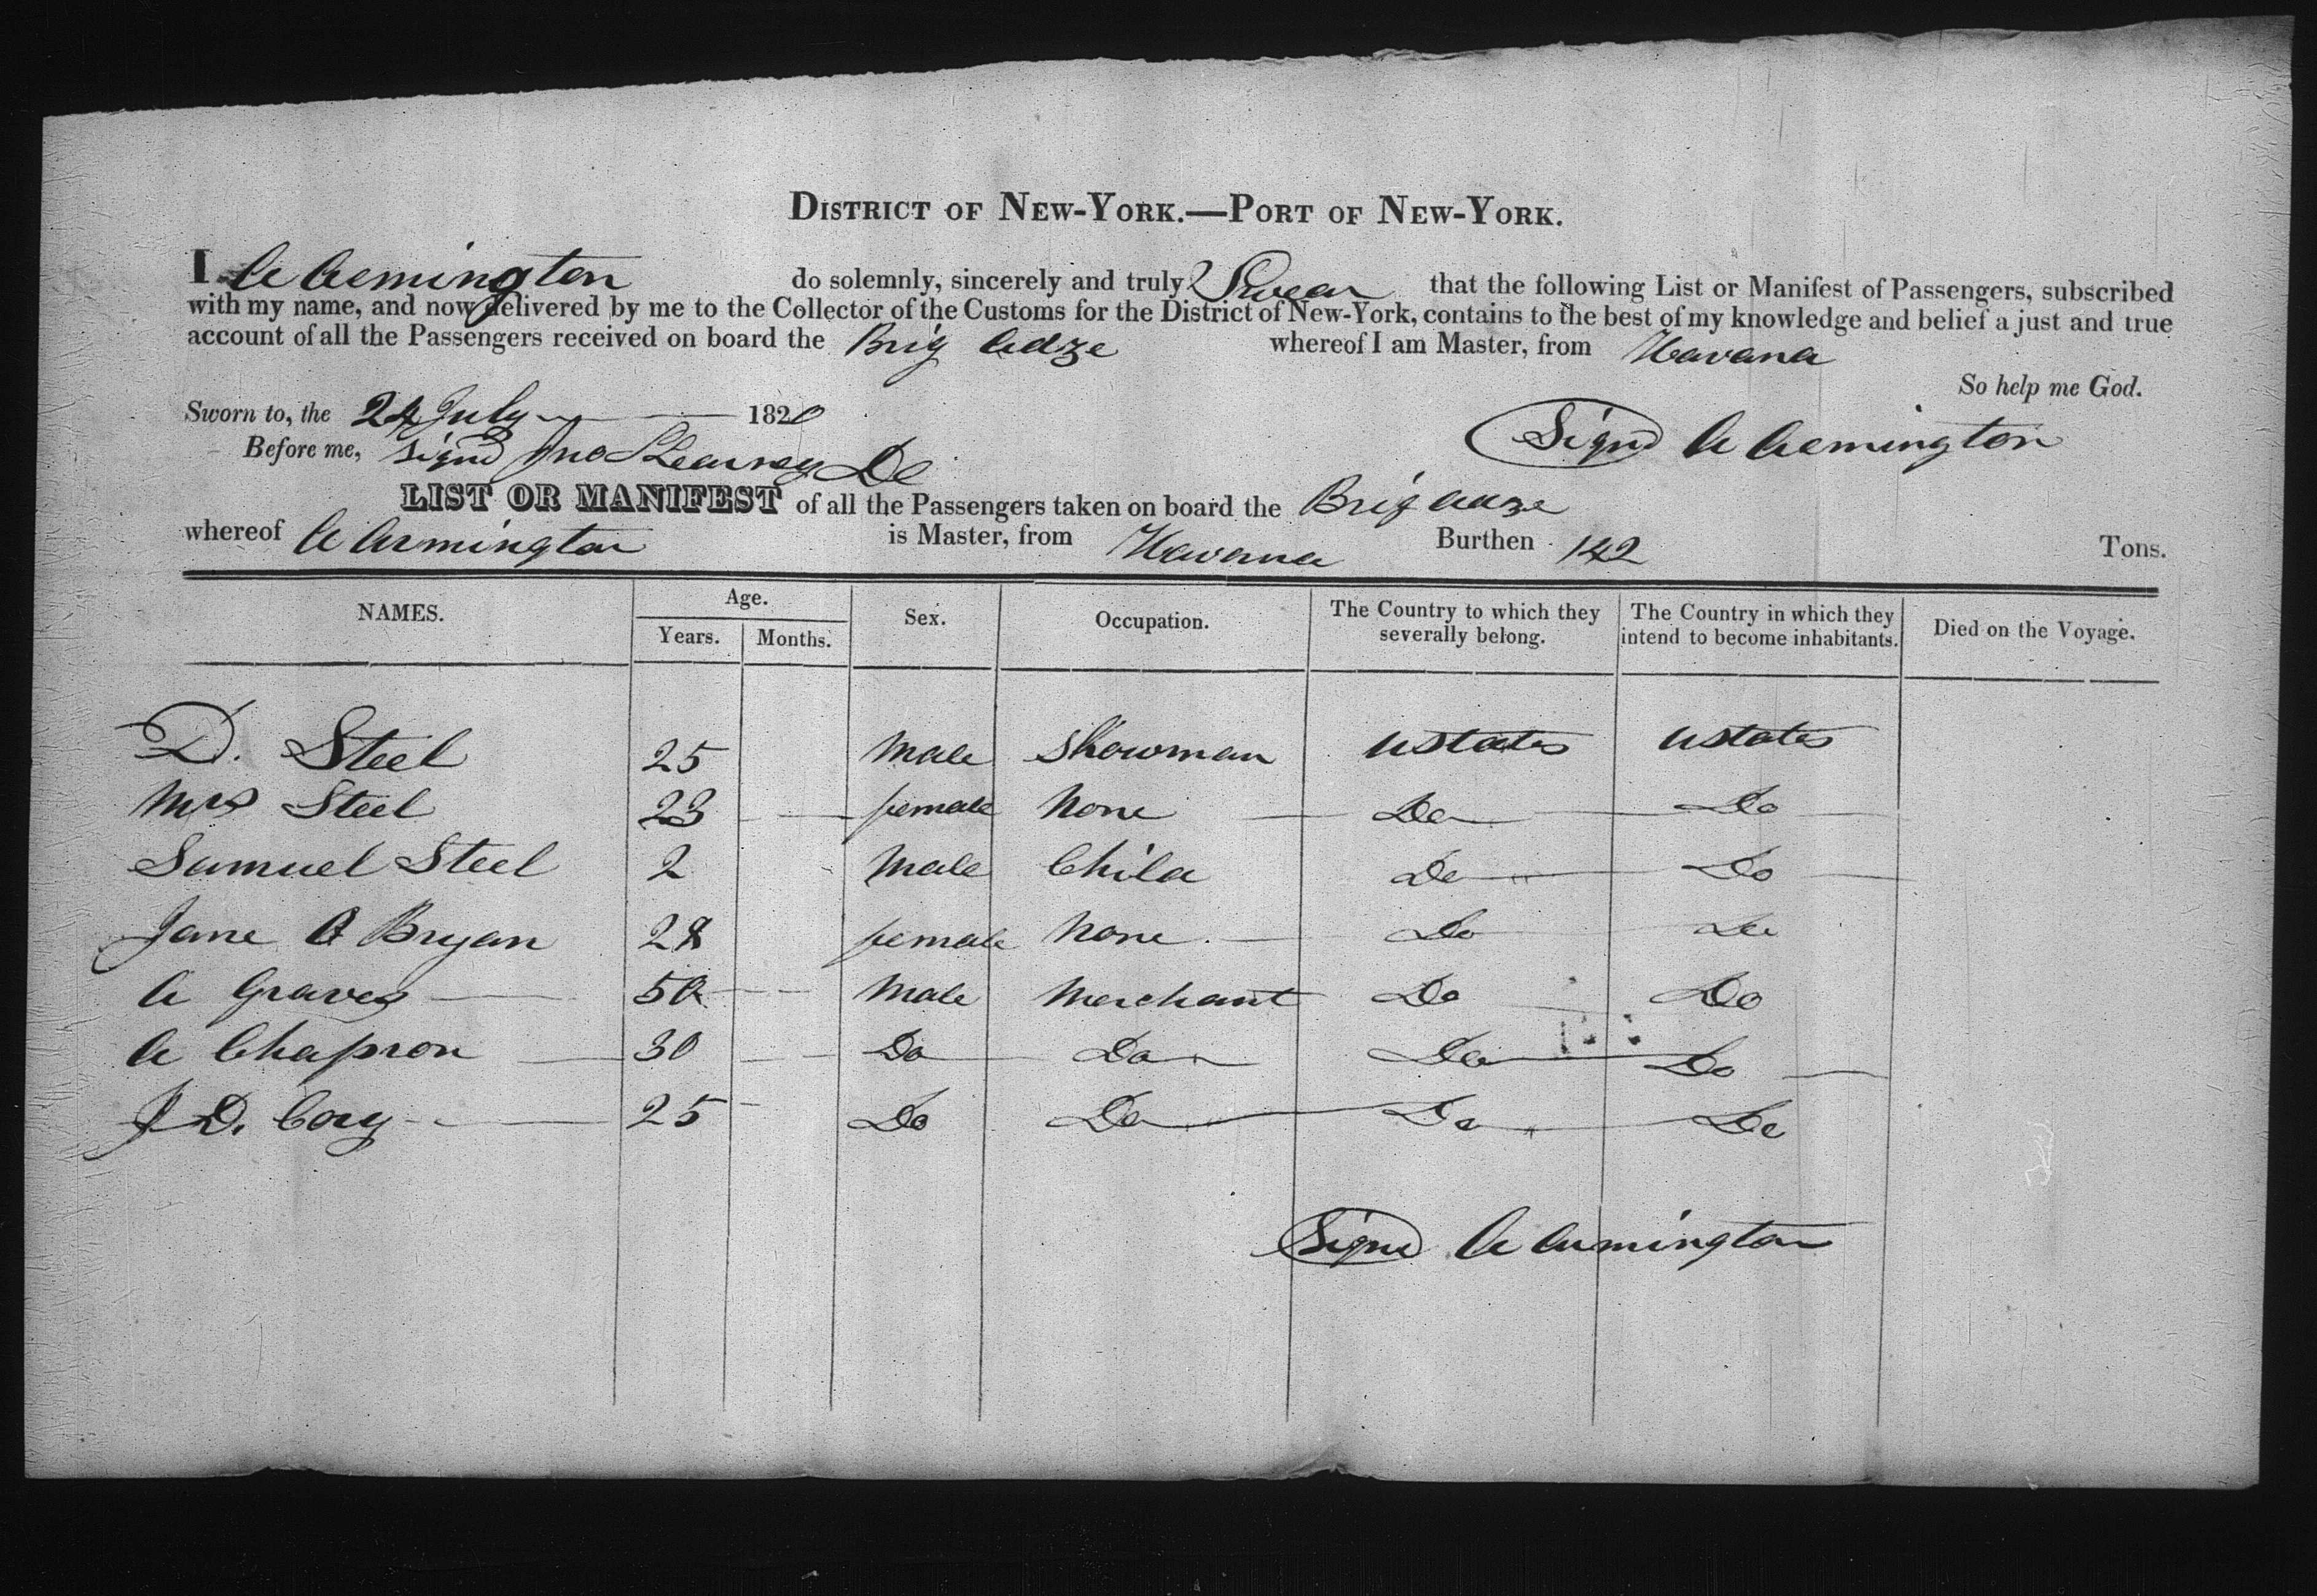 DISTRICT OF NEW-YORK.—PORT OF NEW-YORK.
I A Armington do solemnly, sincerely and truly Swear that the following List or Manifest of Passengers, subscribed
with my name, and now delivered by me to the Collector of the Customs for the District of New-York, contains to the best of my knowledge and belief a just and true
account of all the Passengers received on board the Brig Adze whereof I am Master, from Havana
So help me God.
Sworn to, the 24 July 1820
Signd A Armington
Before me, signd Jno
LIST OR MANIFEST of all the Passengers taken on board the Brig Adze
whereof A Armington is Master, from Havana Burthen 142 Tons.
NAMES. Age. Years. Months. Sex. Occupation. The Country to which they severally belong. The Country in which they intend to become inhabitants. Died on the Voyage.
D. Steel 25 Male Showman UStates UStates
Mrs Steel 23 female None Do Do
Samuel Steel 2 Male Child Do Do
Jane O Bryan 28 female None Do Do
A Graves 50 Male Merchant Do Do
A Chapron 30 Do Do Do Do
J D. Cory 25 Do Do Do Do
Signd A Armington